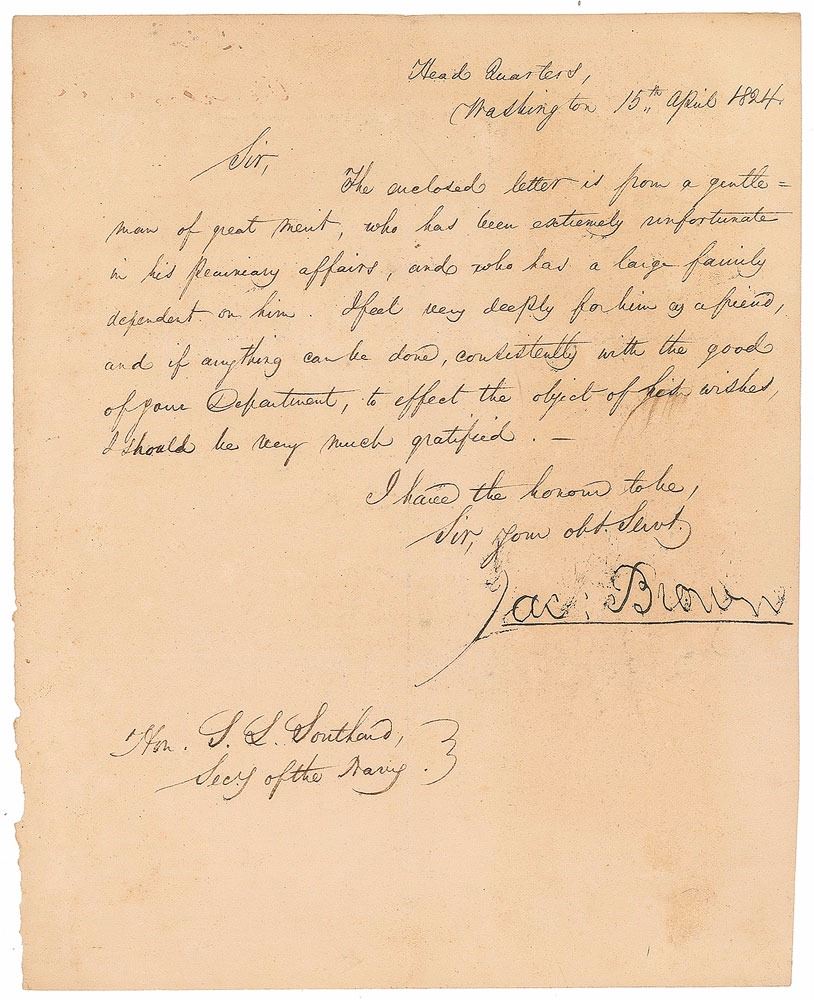 Head Quarters,
Washington 15th April 1824.
Sir,
The enclosed letter is from a gentle=
man of great merit, who has been extremely unfortunate
in his Pecuniary affairs, and who has a large family
dependent on him. I feel very deeply for him as a friend,
and if anything can be done, consistently with the good
of your Department, to effect the object of his wishes,
I should be very much gratified. —
I have the honour to be,
Sir, your obt. Servt.
Jac: Brown
Hon. S. L. Southard,
Secy of the Navy.